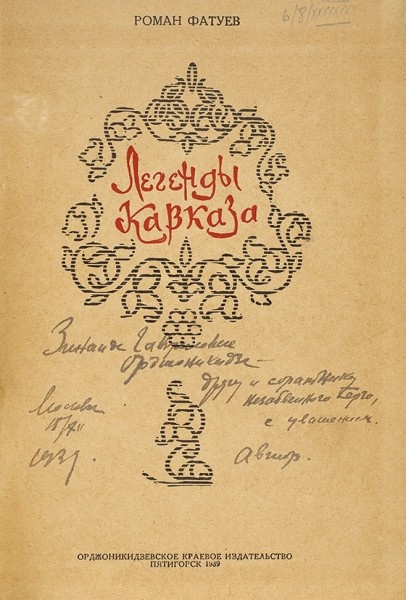 РОМАН ФАТУЕВ
6/8/
Легенды
Кавказа
Зинаиде Гавриловне
Орджоникидзе —
другу и соратнику
незабвенного Серго,
с уважением.
Автор.
Москва
1939.
ОРДЖОНИКИДЗЕВСКОЕ КРАЕВОЕ ИЗДАТЕЛЬСТВО
ПЯТИГОРСК 1939